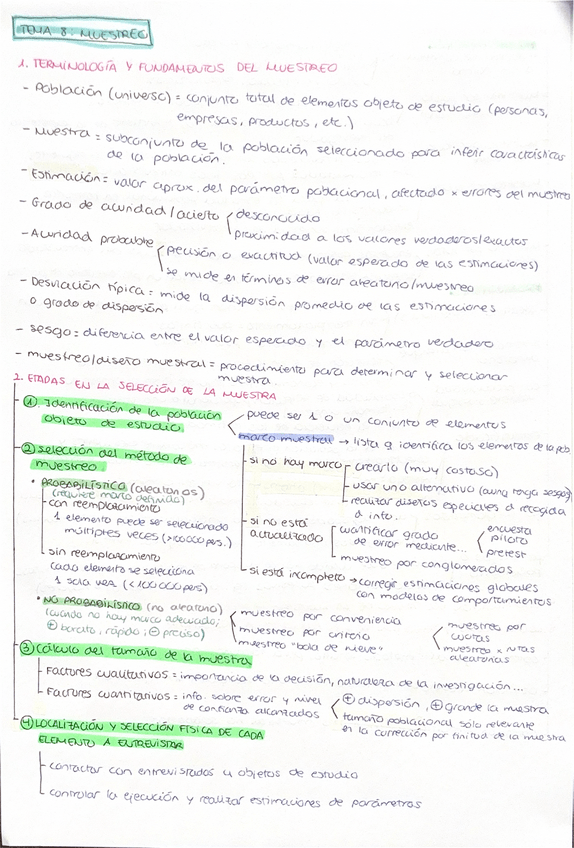 TEMA 8: MUESTREO
1. TERMINOLOGÍA Y FUNDAMENTOS DEL MUESTREO
- Población (universo) = conjunto total de elementos objeto de estudio (personas,
empresas, productos, etc.)
- Muestra = subconjunto de la población seleccionado para inferir características
de la población.
- Estimación = valor aprox. del parámetro poblacional, afectado x errores del muestreo
- Grado de acuridad/acierto
desconocido
proximidad a los valores verdaderos/exactos
- Acuridad probable
precisión o exactitud (valor esperado de las estimaciones)
se mide en términos de error aleatorio/muestreo
- Desviación típica = mide la dispersión promedio de las estimaciones
o grado de dispersión
- sesgo = diferencia entre el valor esperado y el parámetro verdadero
- muestreo/diseño muestral = procedimiento para determinar y seleccionar
muestra.
2. ETAPAS EN LA SELECCIÓN DE LA MUESTRA
① Identificación de la población
objeto de estudio
puede ser 1 o un conjunto de elementos
marco muestral → lista q identifica los elementos de la pob.
- si no hay marco
crearlo (muy costoso)
usar uno alternativo (aunq tenga sesgos)
realizar diseños especiales d recogida
d info.
- si no está
actualizado
cuantificar grado
de error mediante...
encuesta
piloto
pretest
muestreo por conglomerados
- si está incompleto → corregir estimaciones globales
con modelos de comportamientos
② selección del método de
muestreo.
• PROBABILÍSTICO (aleatorios)
(requiere marco definido)
con reemplazamiento
1 elemento puede ser seleccionado
múltiples veces (>100000 pers.)
sin reemplazamiento
cada elemento se selecciona
1 sola vez (<100000 pers)
• NO PROBABILÍSTICO (no aleatorio)
(cuando no hay marco adecuado;
⊕ barato, rápido; ⊖ preciso)
muestreo por conveniencia
muestreo por criterio
muestreo "bola de nieve"
muestreo por
cuotas
muestreo x rutas
aleatorias
③ Cálculo del tamaño de la muestra
- Factores cualitativos = importancia de la decisión, naturaleza de la investigación...
- Factores cuantitativos = info. sobre error y nivel
de confianza alcanzados
⊕ dispersión, ⊕ grande la muestra
tamaño poblacional sólo relevante
en la corrección por finitud de la muestra
④ LOCALIZACIÓN Y SELECCIÓN FÍSICA DE CADA
ELEMENTO A ENTREVISTAR
- contactar con entrevistados u objetos de estudio
- controlar la ejecución y realizar estimaciones de parámetros